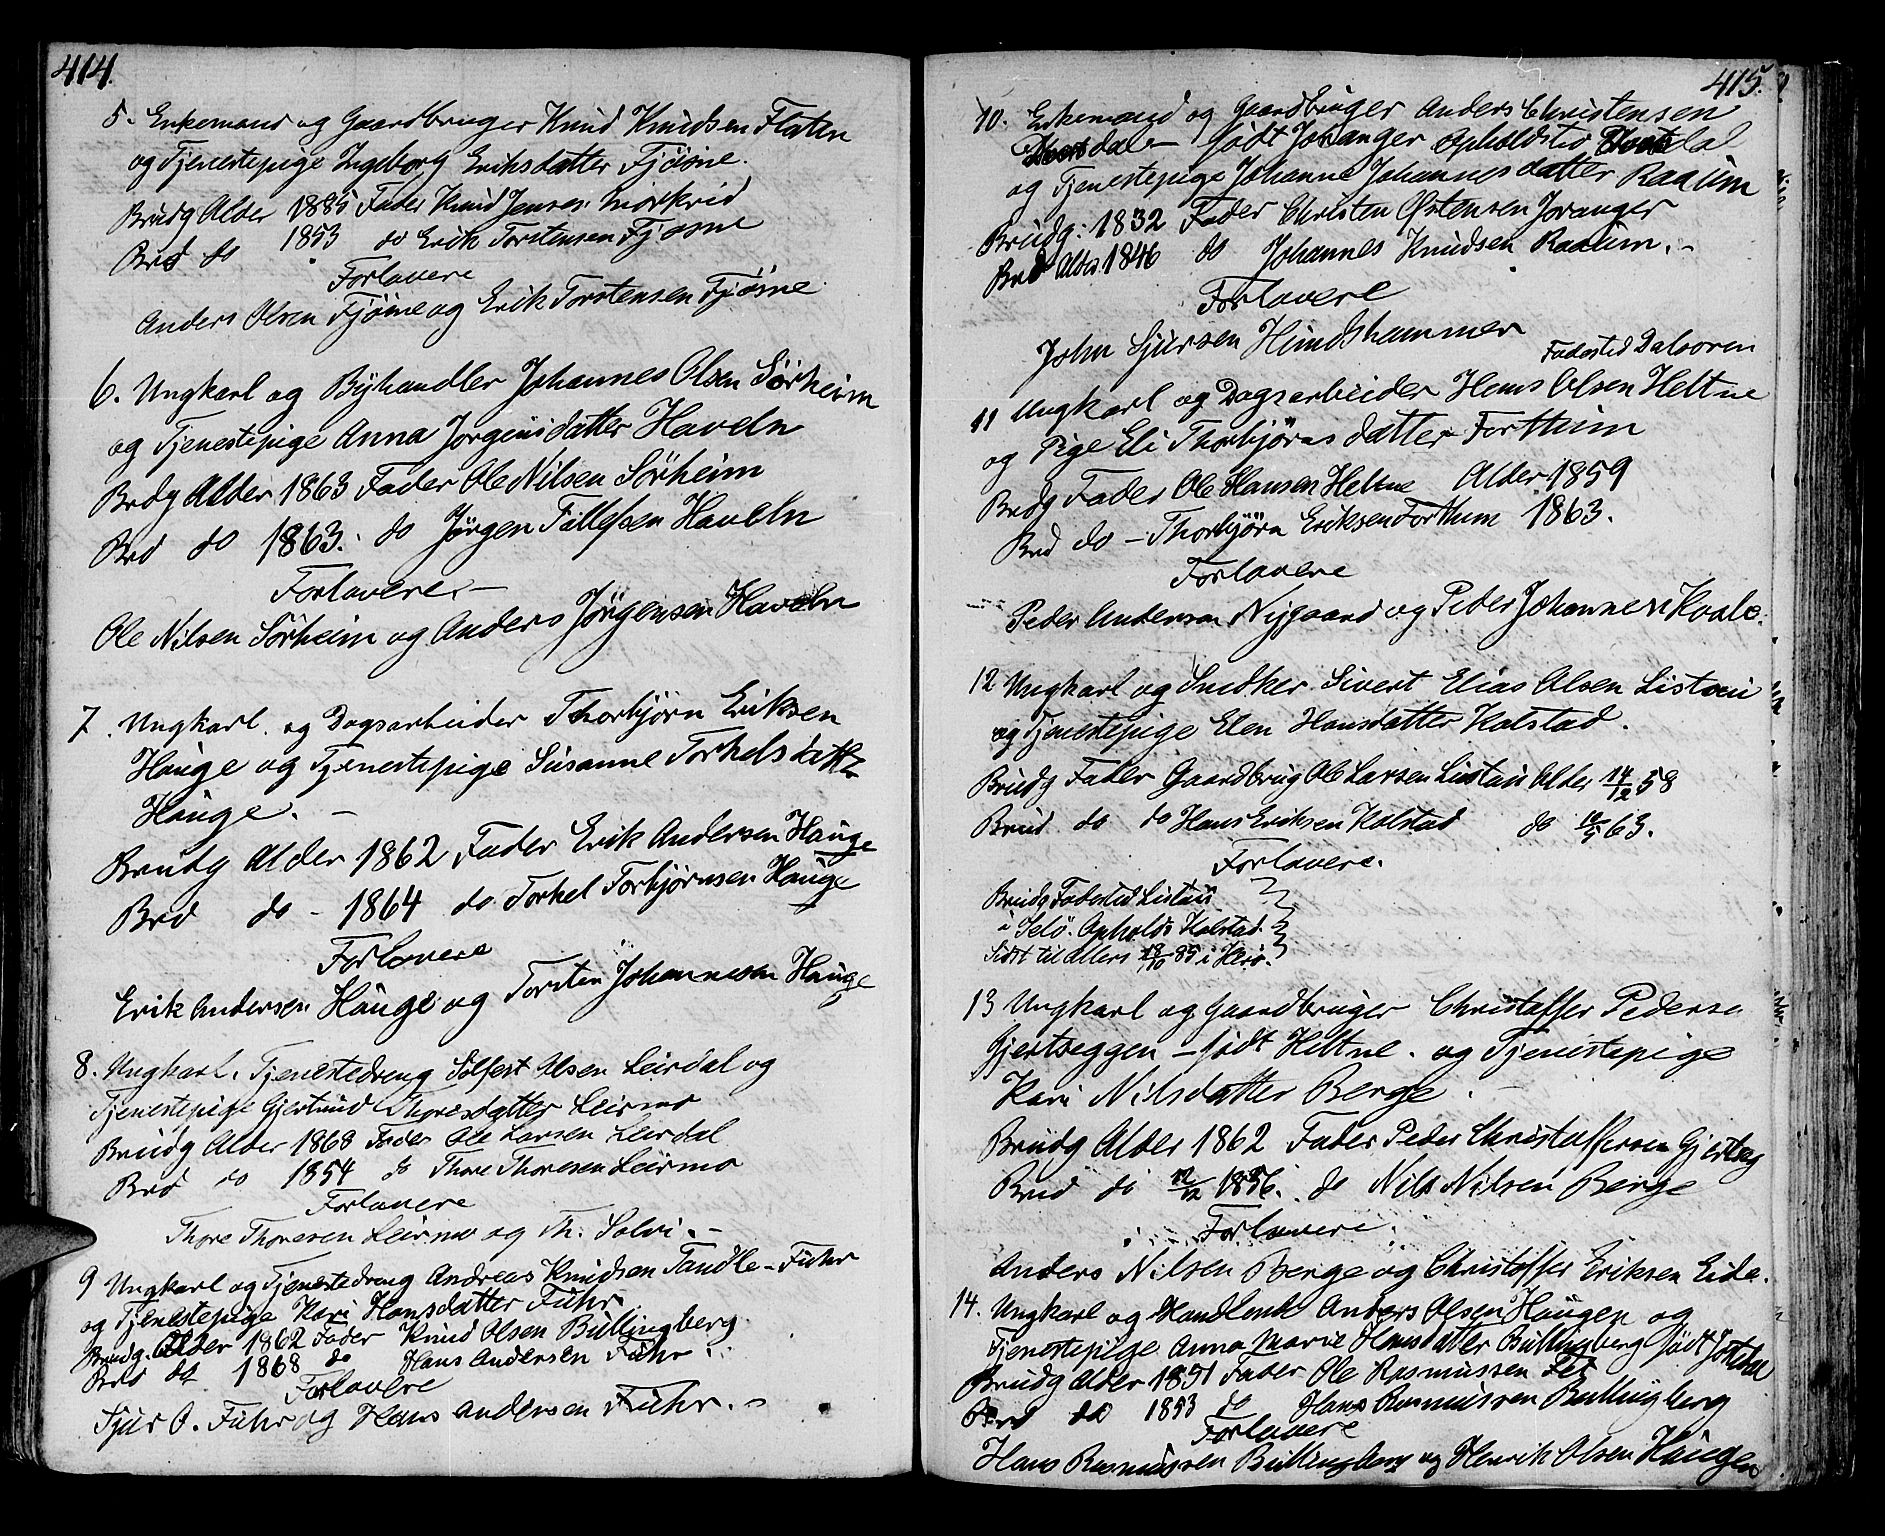 414.
5. Enkemand og Gaardbruger Knud Knudsen Flaten
og Tjenestepige Ingeborg Eriksdatter Fjøsne.
Brudg Alder 1885 Fader Knud Jensen Mørkrid
Brd do 1853 do Erik Torstensen Fjøsne
Forlovere
Anders Olsen Fjøsne og Erik Torstensen Fjøsne
6. Ungkarl og Byhandler Johannes Olsen Sørheim
og Tjenestepige Anna Jørgensdatter Haveln
Brdg Alder 1863 Fader Ole Nilsen Sørheim
Brd do 1863. do Jørgen Tollefsen Haveln
Forlovere. –
Ole Nilsen Sørheim og Anders Jørgensen Haveln
7. Ungkarl og Dagsarbeider Thorbjørn Eriksen
Hauge og Tjenestepige Susanne Torkelsdatter
Hauge. –
Brudg Alder 1862 Fader Erik Andersen Hauge
Brd do – 1864 do Torkel Torbjørnsen Hauge
Forlovere
Erik Andersen Hauge og Torsten Johannesen Hauge
8. Ungkarl. Tjenestedreng Solfest Olsen Leirdal og
Tjenestepige Gjertrud Thoresdatter Leirmo
Brudg Alder 1868 Fader Ole Larsen Leirdal
Brd do 1854 do Thore Thoresen Leirmo
Forlovere
Thore Thoresen Leirmo og Th. Solvi. –
9 Ungkarl og Tjenestedreng Andreas Knudsen Tandle – Fuhr
og Tjenestepige Kari Hansdatter Fuhr
Brudg. Alder 1862 Fader Knud Olsen Bullingberg
Brd do 1868 do Hans Andersen Fuhr.
Forlovere
Sjur O. Fuhr og Hans Andersen Fuhr. –
415.
10. Enkemand og Gaardbruger Anders Christensen
– født Joranger Opholdsted
og Tjenestepige Johanne Johannesdatter Raaum
Brudg: 1832 Fader Christen Østensen Joranger
Brd Alder 1846 do Johannes Knudsen Raaum. –
Forlovere
John Sjursen Hundshammer
Fødested Dalsøren
11 Ungkarl og Dagsarbeider Hans Olsen Heltne
og Pige Eli Thorbjørnsdatter Forthun
Brdg Fader Ole Hansen Heltne Alder 1859
Brd do – Thorbjørn Eriksen Forthum 1863.
Forlovere
Peder Andersen Nygaard og Peder Johannesen Kvale.
12 Ungkarl og Snedker Sivert Elias Olsen Listau
og Tjenestepige Elen Hansdatter Kalstad.
Brudg Fader Gaardbrug Ole Larsen Listau Alder 14/12 58
Brud do do Hans Eriksen Kalstad do 63.
Forlovere.
Brudg Fødested Listau
i Opholds Kalstad
Sidst til Alters 18/10 85 i Herø.
13 Ungkarl og Gaardbruger Christoffer Pederse
Gjertseggen – født Heltne. og Tjenestepige
Kari Nilsdatter Berge. –
Brudg Alder 1862 Fader Peder Christoffersen Gjertseg
Brud do 12/12 1856. do Nils Nilsen Berge
Forlovere.
Anders Nilsen Berge og Christoffer Eriksen Eide.
14. Ungkarl og Handlende Anders Olsen Haugen og
Tjenestepige Anna Marie Hansdatter Bullingberg født Jostedal
Brudg Alder 1851 Fader Ole Rasmussen Fet
Brd do 1853 do Hans Rasmussen Bullingberg
Forlovere
Hans Rasmussen Bullingberg og Henrik Olsen Haugen